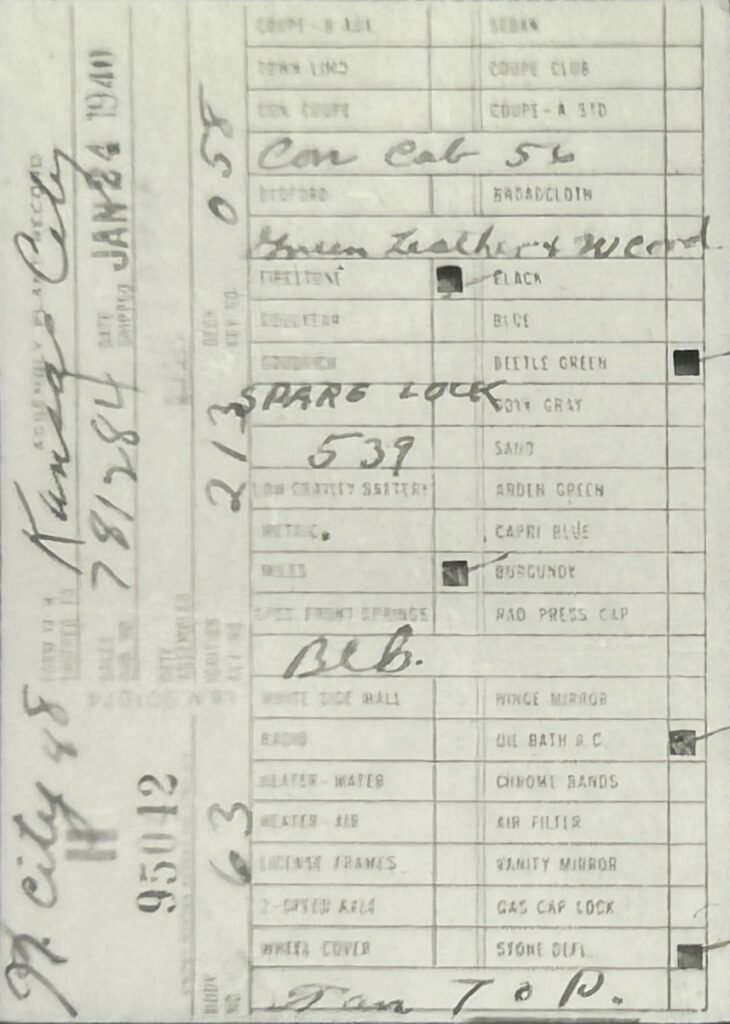 SEDAN
CONV COUPE CLUB
CON COUPE COUPE - A 3YD
Con Cab 56
BEDFORD BROADCLOTH
Green Leather & W Cord
FIRESTONE BLACK
GOODYEAR BLUE
GOODRICH BEETLE GREEN
SPARE LOCK COTN GRAY
539 SAND
LOW GRAVITY BATTERY ARDEN GREEN
METAL CAPRI BLUE
MILES BURGUNDY
SPEC FRONT SPRINGS RAD PRESS CAP
Blb.
WHITE SIDE WALL HINGE MIRROR
RADIO OIL BATH A C
HEATER - WATER CHROME BANDS
HEATER - AIR AIR FILTER
LICENSE FRAMES VANITY MIRROR
2-SPEED AXLE GAS CAP LOCK
WHEEL COVER STONE DEFL
Tan Top.
City 48
Kansas City
ASSEMBLY PLANT RECORD
H
781284
DATE SHIPPED
JAN 24 1940
95042
BODY NO
63
213
058